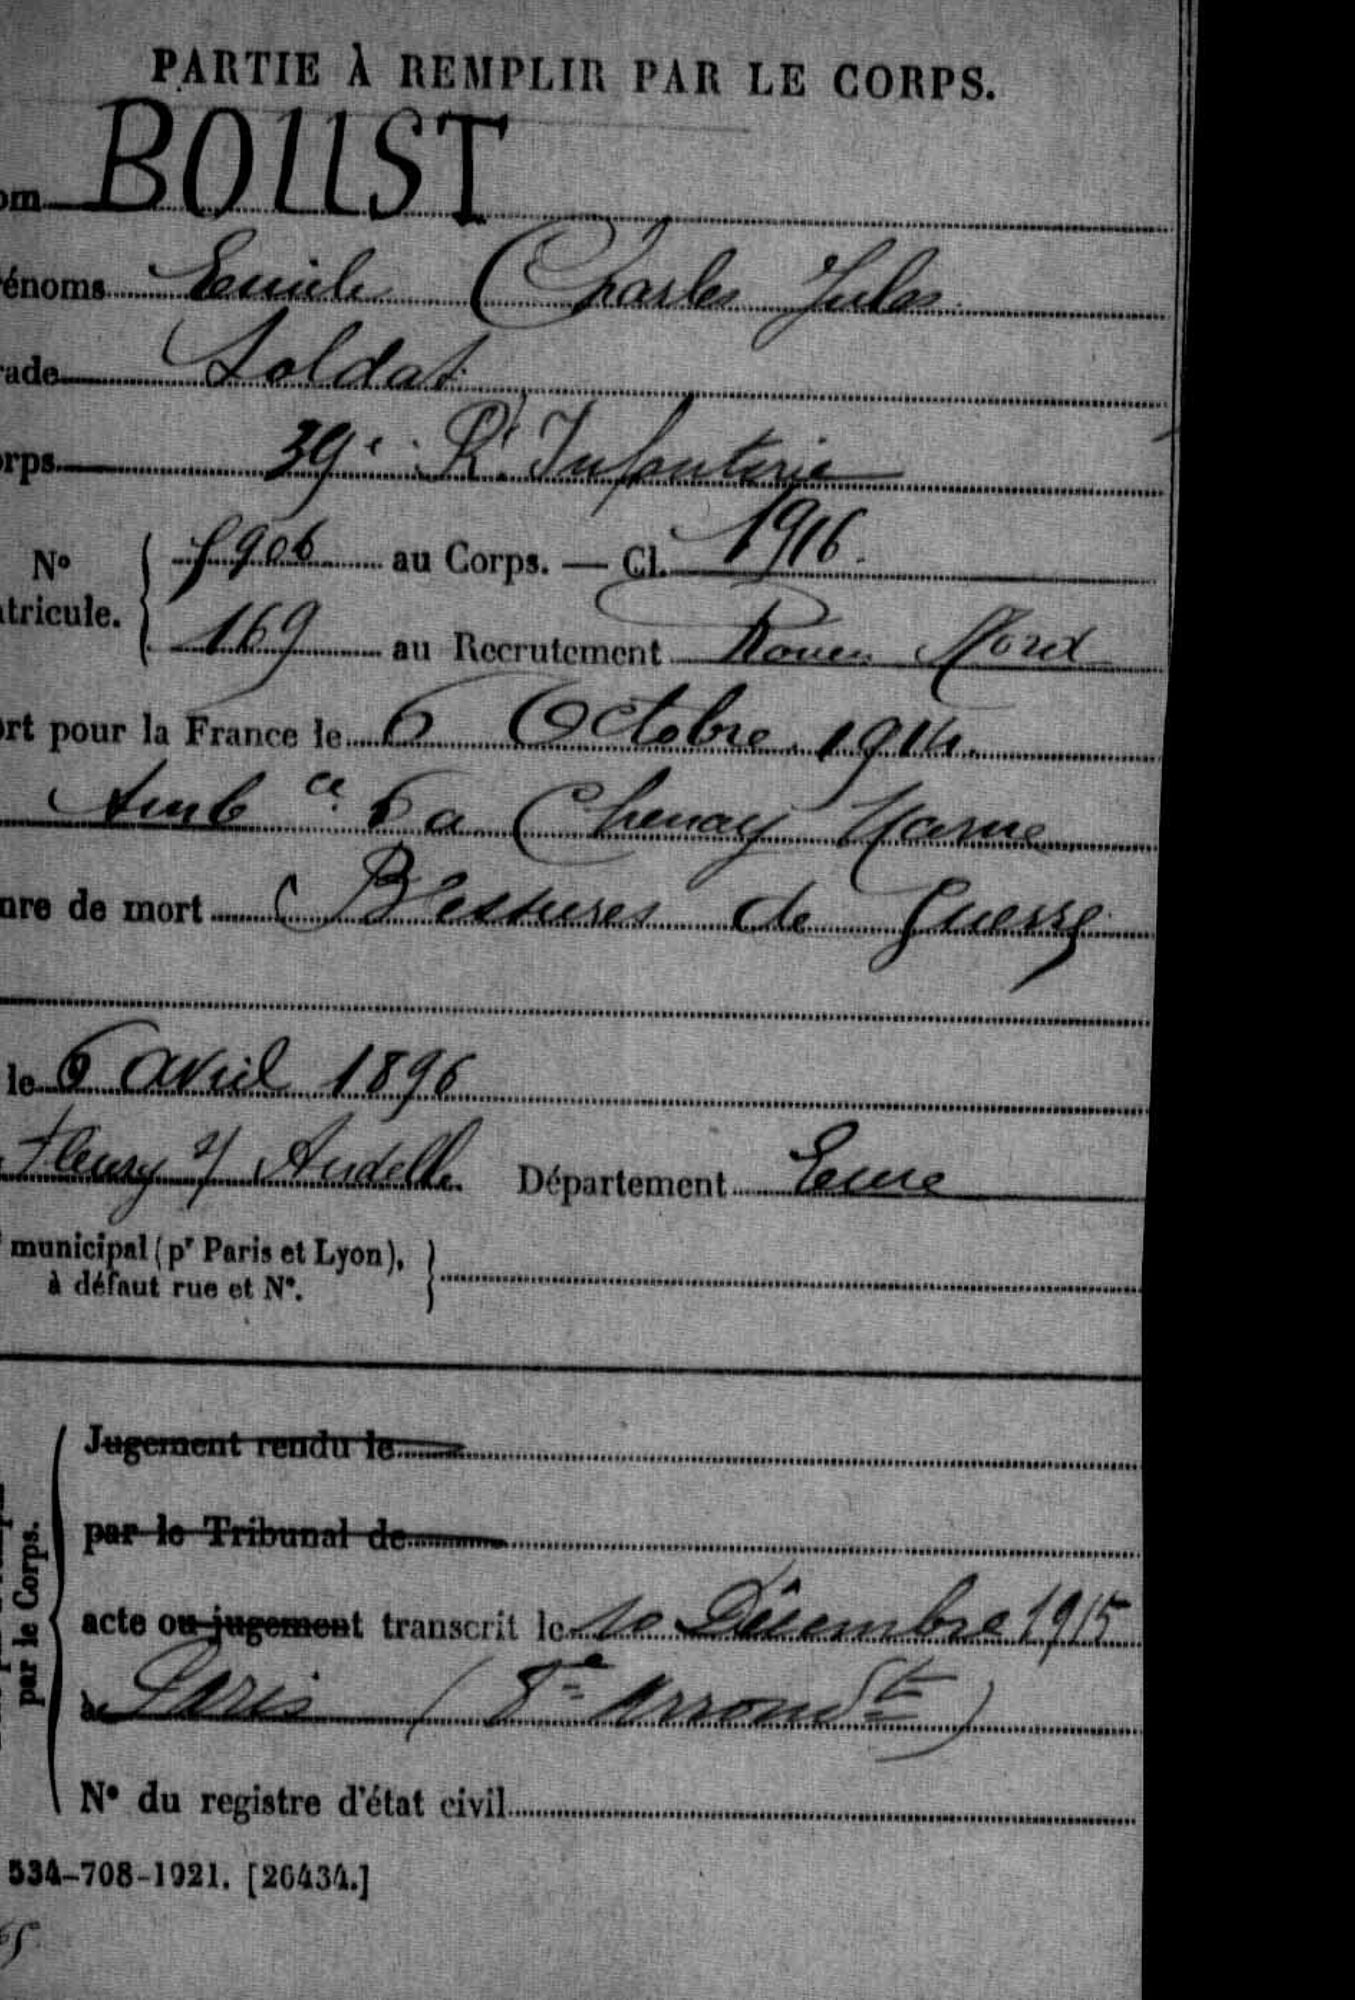 PARTIE À REMPLIR PAR LE CORPS.
om BOUST
énoms Emile Charles Jules
rade Soldat
orps 39e Rt Infanterie
No 5906 au Corps. — Cl. 1916.
atricule. 169 au Recrutement Rouen Nord
ort pour la France le 6 Octobre 1914
Ambce 6 a Chenay Marne
nre de mort Blessures de Guerre
le 6 avril 1896
Fleury s/ Andelle Département Eure
municipal (pr Paris et Lyon),
à défaut rue et No.
Jugement rendu le
par le Tribunal de
acte ou jugement transcrit le 10 Décembre 1915
à Paris (8e Arrondt)
No du registre d'état civil
par le Corps.
534-708-1921. [26434.]